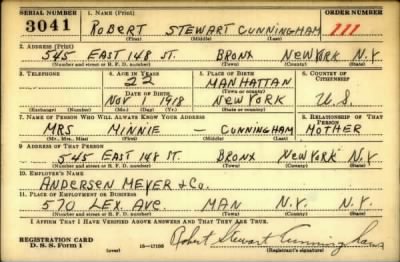 SERIAL NUMBER 1. NAME (Print) ORDER NUMBER
3041 ROBERT STEWART CUNNINGHAM 111
(First) (Middle) (Last)
2. ADDRESS (Print)
545 EAST 148 ST. BRONX NEW YORK N.Y
(Number and street or R. F. D. number) (Town) (County) (State)
3. TELEPHONE 4. AGE IN YEARS 5. PLACE OF BIRTH 6. COUNTRY OF CITIZENSHIP
22 MANHATTAN
DATE OF BIRTH (Town or county)
NOV 1918 NEW YORK U.S.
(Exchange) (Number) (Mo.) (Day) (Yr.) (State or country)
7. NAME OF PERSON WHO WILL ALWAYS KNOW YOUR ADDRESS 8. RELATIONSHIP OF THAT PERSON
MRS. MINNIE — CUNNINGHAM MOTHER
(Mr., Mrs., Miss) (First) (Middle) (Last)
9. ADDRESS OF THAT PERSON
545 EAST 148 ST. BRONX NEW YORK N.Y
(Number and street or R. F. D. number) (Town) (County) (State)
10. EMPLOYER'S NAME
ANDERSEN MEYER & CO.
11. PLACE OF EMPLOYMENT OR BUSINESS
570 LEX. AVE. MAN N.Y. N.Y.
(Number and street or R. F. D. number) (Town) (County) (State)
I AFFIRM THAT I HAVE VERIFIED ABOVE ANSWERS AND THAT THEY ARE TRUE.
REGISTRATION CARD
D. S. S. Form 1 (over) 16—17105 Robert Stewart Cunningham
(Registrant's signature)